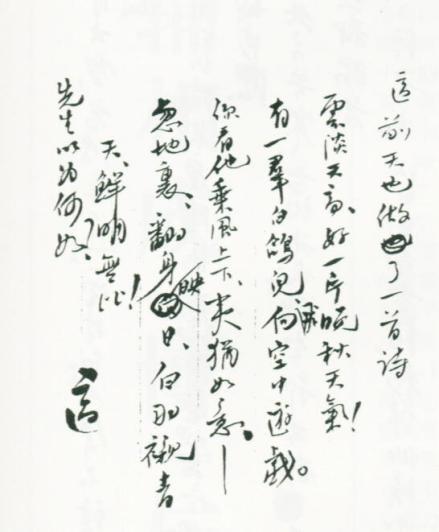 適前天也做了一首詩
雲淡天高、好一片晚秋天氣!
有一羣白鴿兒向空中遊戲。
你看他乘風上下、夷猶如意、—
忽地裏、翻身映日、白羽襯青
天、鮮明無比!
先生以為何如、
適